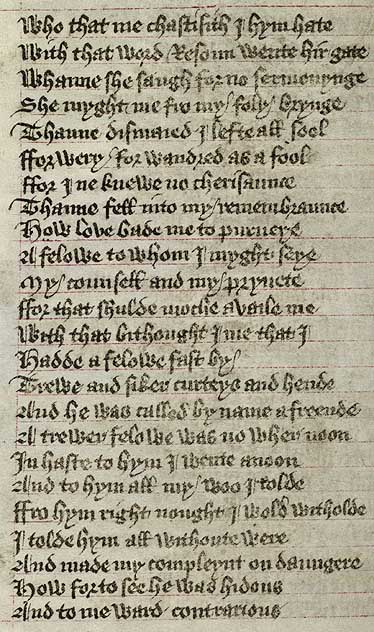 Who that me chastisith I hym hate
With that word Resoun wente hir gate
Whanne she saugh for no sermonynge
She myght me fro my foly brynge
Thanne dismaied I lefte all sool
ffor wery for wandred as a fool
ffor I ne knewe no cherisaunce
Thanne fell into my remembraunce
How love bade me to purveye
A felowe to whom I myght seye
My counsell and my pryuete
ffor that shulde moche availe me
With that bithought I me that I
Hadde a felowe fast by
Trewe and siker curteys and hende
And he was called by name a freende
A trewer felowe was no wher noon
In haste to hym I wente anoon
And to hym all my woo I tolde
ffro hym right nought I wold witholde
I tolde hym all withoute were
And made my compleynt on daungere
How forto see he was hidous
And to me ward contrarious